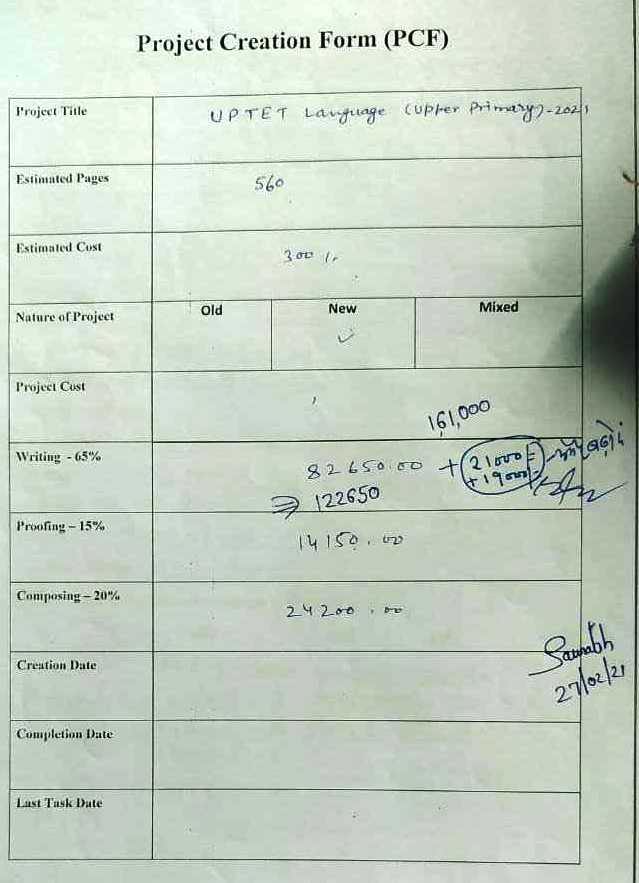 Project Creation Form (PCF)
Project Title UPTET Language (Upper Primary)-2021
Estimated Pages 560
Estimated Cost 300/-
Nature of Project Old New ✓ Mixed
Project Cost
161,000
Writing - 65% 82650.00 + 21000/=
+ 19000/=
⇒ 122650
Proofing – 15% 14150.00
Composing – 20% 24200.00
Saurabh
27/02/21
Creation Date
Completion Date
Last Task Date